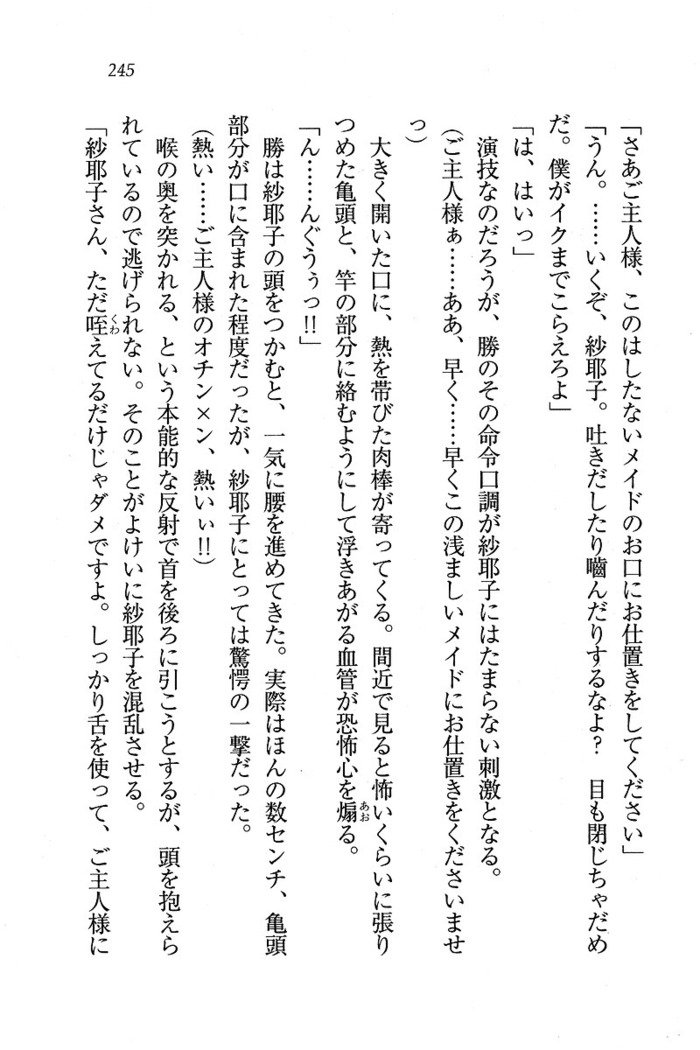 245
「さあご主人様、このはしたないメイドのお口にお仕置きをしてください」
「うん。……いくぞ、紗耶子。吐きだしたり嚙んだりするなよ？　目も閉じちゃだめ
だ。僕がイクまでこらえろよ」
「は、はいっ」
　演技なのだろうが、勝のその命令口調が紗耶子にはたまらない刺激となる。
（ご主人様ぁ……ああ、早く……早くこの浅ましいメイドにお仕置きをくださいませ
っ）
　大きく開いた口に、熱を帯びた肉棒が寄ってくる。間近で見ると怖いくらいに張り
つめた亀頭と、竿の部分に絡むようにして浮きあがる血管が恐怖心を煽あおる。
「ん……んぐうぅっ!!」
　勝は紗耶子の頭をつかむと、一気に腰を進めてきた。実際はほんの数センチ、亀頭
部分が口に含まれた程度だったが、紗耶子にとっては驚愕の一撃だった。
（熱い……ご主人様のオチン×ン、熱いぃ!!）
　喉の奥を突かれる、という本能的な反射で首を後ろに引こうとするが、頭を抱えら
れているので逃げられない。そのことがよけいに紗耶子を混乱させる。
「紗耶子さん、ただ咥くわえてるだけじゃダメですよ。しっかり舌を使って、ご主人様に